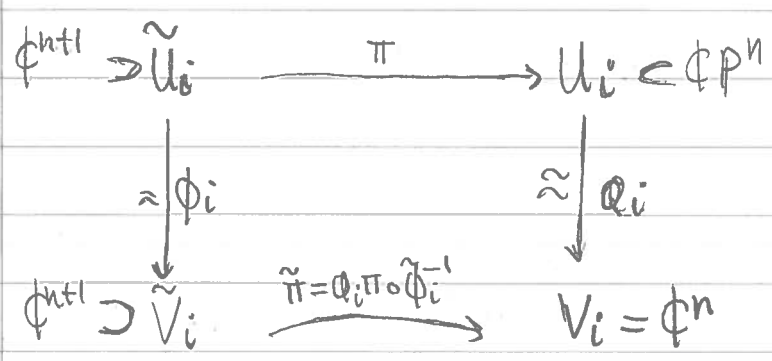 ℂⁿ⁺¹ ⊃ Ũᵢ π Uᵢ ⊂ ℂPⁿ
≈ ϕᵢ ≈ φᵢ
ℂⁿ⁺¹ ⊃ Ṽᵢ π̃ = φᵢ π ∘ ϕ̃ᵢ⁻¹ Vᵢ = ℂⁿ